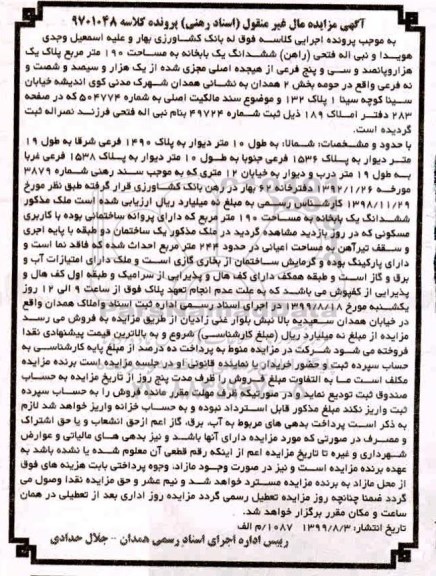 آگهی مزایده مال غیر منقول (اسناد رهنی) پرونده کلاسه ۹۷۰۱۰۴۸
به موجب پرونده اجرایی کلاسه فوق له بانک کشاورزی بهار و علیه اسمعیل وجدی
هویدا و نبی اله فتحی (راهن) ششدانگ یک بابخانه به مساحت ۱۹۰ متر مربع پلاک یک
هزاروپانصد و سی و پنج فرعی از هیجده اصلی مجزی شده از یک هزار و سیصد و شصت و
نه فرعی واقع در حومه بخش ۲ همدان به نشانی همدان شهرک مدنی کوی اندیشه خیابان
سینا کوچه سینا ۱ پلاک ۱۳۲ و موضوع سند مالکیت اصلی به شماره ۵۰۴۷۷۴ که در صفحه
۲۸۳ دفتر املاک ۱۸۹ ذیل ثبت شماره ۴۹۷۲۴ بنام نبی اله فتحی فرزند نصراله ثبت
گردیده است.
با حدود و مشخصات: شمالا: به طول ۱۰ متر دیوار به پلاک ۱۴۹۰ فرعی شرقا به طول ۱۹
متر دیوار به پلاک ۱۵۳۶ فرعی جنوبا به طول ۱۰ متر دیوار به پلاک ۱۵۳۸ فرعی غربا
به طول ۱۹ متر درب و دیوار به خیابان ۱۲ متری که به موجب سند رهنی شماره ۳۸۷۹
مورخه ۱۳۹۲/۱/۲۶ دفترخانه ۶۲ بهار در رهن بانک کشاورزی قرار گرفته طبق نظر مورخ
۱۳۹۸/۱۱/۲۹ کارشناس رسمی به مبلغ نه میلیارد ریال ارزیابی شده است ملک مذکور
ششدانگ یک بابخانه به مساحت ۱۹۰ متر مربع که دارای پروانه ساختمانی بوده با کاربری
مسکونی که در روز بازدید مشاهده گردید در ملک مذکور یک ساختمان دو طبقه با پایه اجری
و سقف تیرآهن به مساحت اعیانی در حدود ۲۴۴ متر مربع احداث شده که فاقد نما است و
دارای پارکینگ بوده و گرمایش ساختمان از بخاری گازی است و ملک دارای امتیازات آب و
برق و گاز است و طبقه همکف دارای کف هال و پذیرایی از سرامیک و طبقه اول کف هال و
پذیرایی از کفپوش می باشد که به علت عدم انجام تعهد پلاک فوق از ساعت ۹ الی ۱۲ روز
یکشنبه مورخ ۱۳۹۹/۸/۱۸ در اجرای اسناد رسمی اداره ثبت اسناد و املاک همدان واقع
در خیابان همدان سعیدیه بالا نبش بلوار غنی زادیان از طریق مزایده به فروش می رسد
مزایده از مبلغ نه میلیارد ریال (مبلغ کارشناسی) شروع و به بالاترین قیمت پیشنهادی نقدا
فروخته می شود شرکت در مزایده منوط به پرداخت ده درصد از مبلغ پایه کارشناسی به
حساب سپرده ثبت و حضور خریدار یا نماینده قانونی او در جلسه مزایده است برنده مزایده
مکلف است ما به التفاوت مبلغ فروش را ظرف مدت پنج روز از تاریخ مزایده به حساب
صندوق ثبت تودیع نماید و در صورتیکه ظرف مهلت مقرر مانده فروش را به حساب سپرده
ثبت واریز نکند مبلغ مذکور قابل استرداد نبوده و به حساب خزانه واریز خواهد شد لازم
به ذکر است پرداخت بدهی های مربوط به آب، برق، گاز اعم ازحق انشعاب و یا حق اشتراک
و مصرف در صورتی که مورد مزایده دارای آنها باشد و نیز بدهی های مالیاتی و عوارض
شهرداری و غیره تا تاریخ مزایده اعم از اینکه رقم قطعی آن معلوم شده یا نشده باشد به
عهده برنده مزایده است و نیز در صورت وجود مازاد، وجوه پرداختی بابت هزینه های فوق
از محل مازاد به برنده مزایده مسترد خواهد شد و نیم عشر و حق مزایده نقدا وصول می
گردد ضمنا چنانچه روز مزایده تعطیل رسمی گردد مزایده روز اداری بعد از تعطیلی در همان
ساعت و مکان مقرر برگزار خواهد شد.
تاریخ انتشار: ۱۳۹۹/۸/۳ ۱۰۸۷/م الف
رییس اداره اجرای اسناد رسمی همدان - جلال حدادی